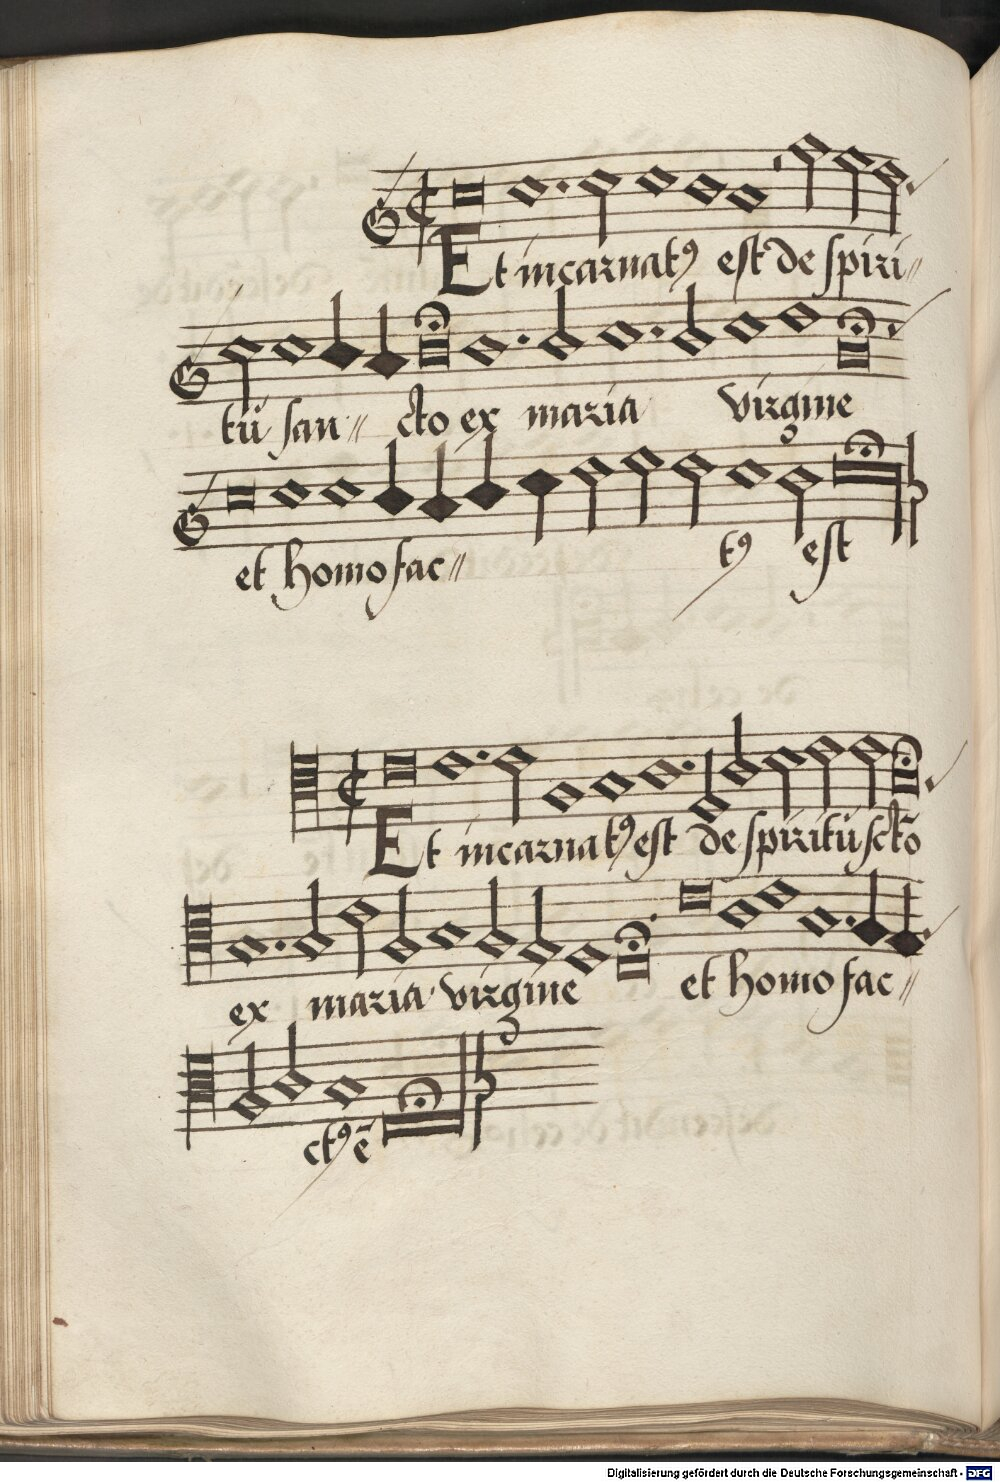 Et incarnatꝰ est de spiri〃
tū san〃 cto ex maria virgine
et homo fac〃 tꝰ est
Et incarnatꝰ est de spiritū sctō
ex maria virgine et homo fac〃
ctꝰ ē
Digitalisierung gefördert durch die Deutsche Forschungsgemeinschaft - DFG